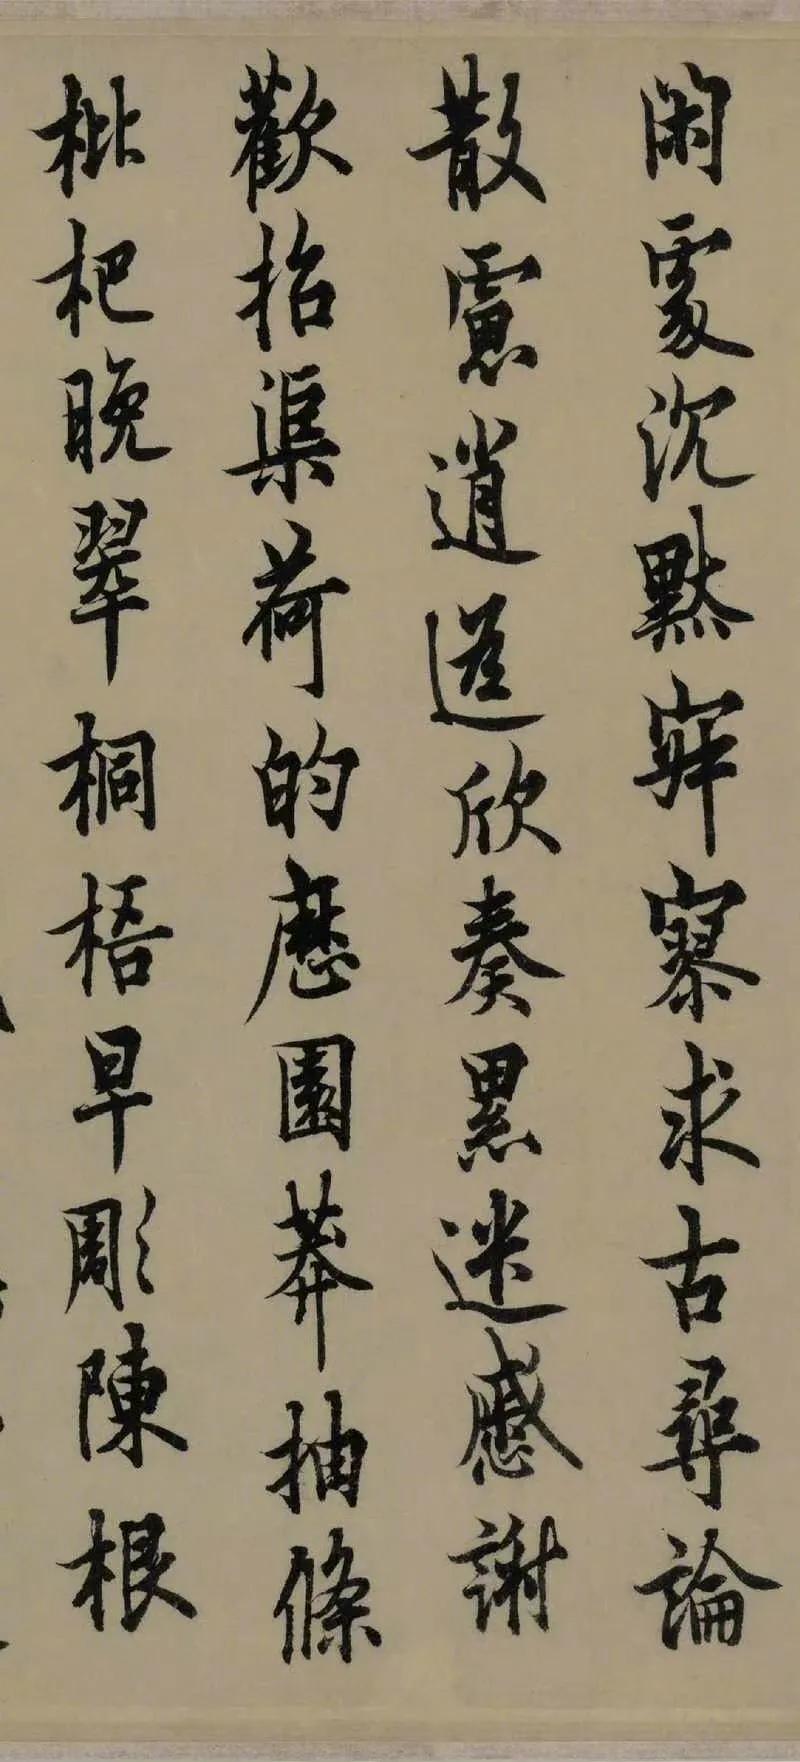 閑處沉默寂寥求古尋論
散慮逍遙欣奏累迷慼謝
歡招渠荷的歷園莽抽條
枇杷晚翠桐梧早彫陳根